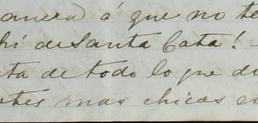 anera) á que no te
hi de Santa Cata! –
ta de todo lo que di
tes mas chicas es